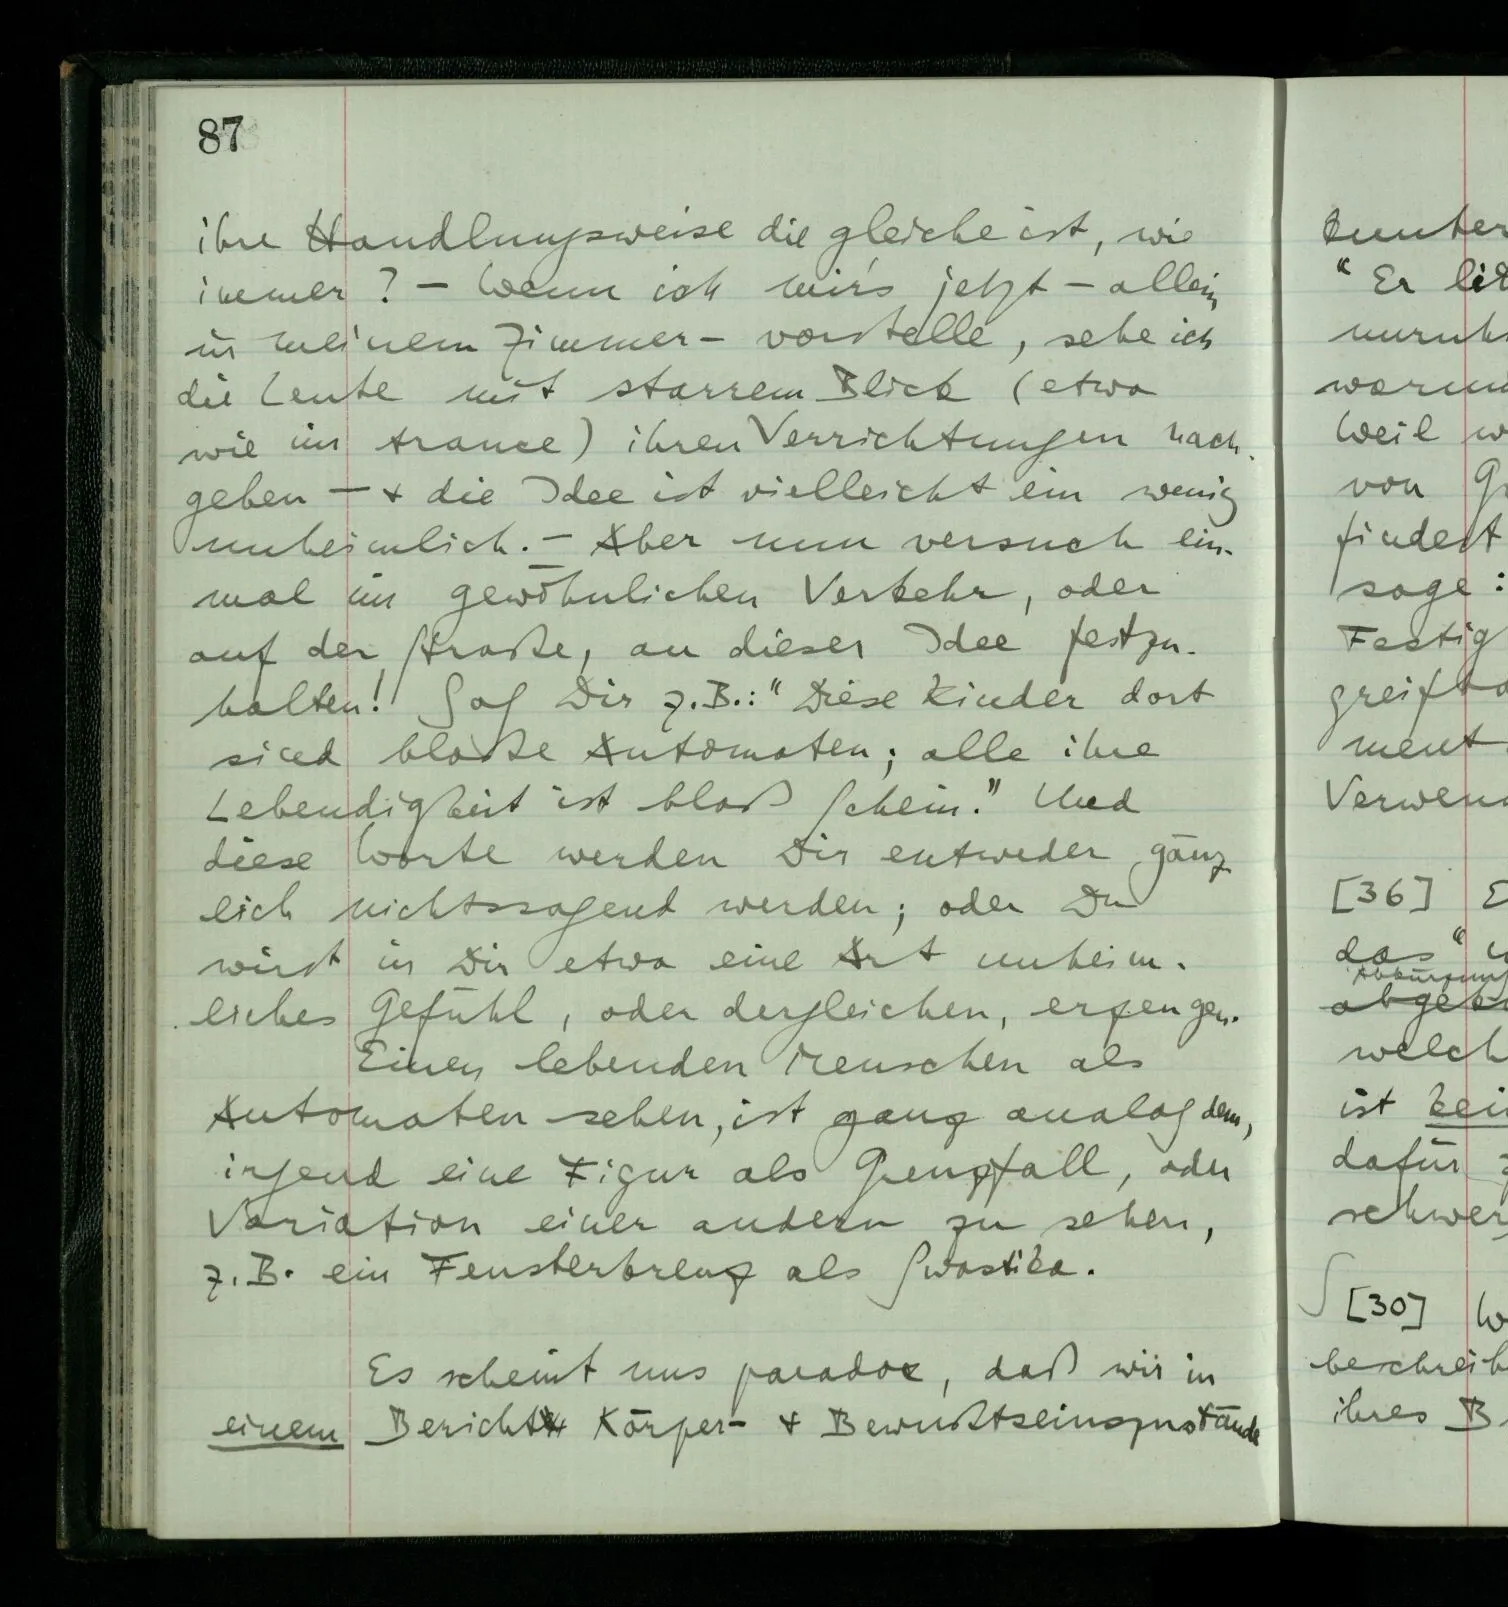 87
ihre Handlungsweise die gleiche ist, wie
immer? – Wenn ich mir's jetzt – allein
in meinem Zimmer – vorstelle, sehe ich
die Leute mit starrem Blick (etwa
wie im trance) ihren Verrichtungen nach-
gehen – & die Idee ist vielleicht ein wenig
unheimlich. – Aber nun versuch ein-
mal im gewöhnlichen Verkehr, oder
auf der Straße, an dieser Idee festzu-
halten! Sag Dir z.B.: “Diese Kinder dort
sind bloße Automaten; alle ihre
Lebendigkeit ist bloß Schein.” Und
diese Worte werden Dir entweder gänz-
lich nichtssagend werden; oder Du
wirst in Dir etwa eine Art unheim-
liches Gefühl, oder dergleichen, erzeugen.
Einen lebenden Menschen als
Automaten sehen, ist ganz analog dem,
irgend eine Figur als Grenzfall, oder
Variation einer andern zu sehen,
z.B. ein Fensterkreuz als Swastika.
Es scheint uns paradox, daß wir in
einem Bericht Körper- & Bewußtseinszustände
“Er
Weil
von
findest
sage:
[36]
das“
welch
ist
dafür
[30]
ihres B